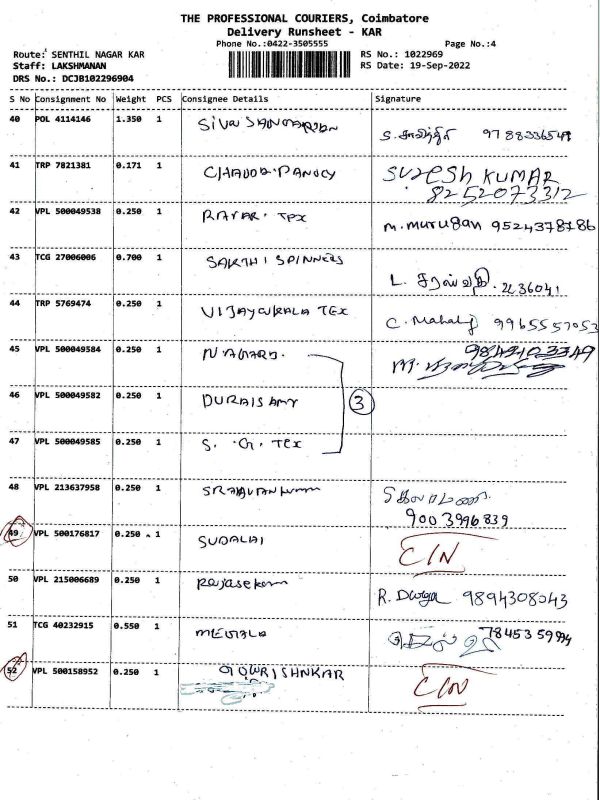 THE PROFESSIONAL COURIERS, Coimbatore
Delivery Runsheet - KAR
Phone No.:0422-3505555 Page No.:4
Route: SENTHIL NAGAR KAR RS No.: 1022969
Staff: LAKSHMANAN RS Date: 19-Sep-2022
DRS No.: DCJB102296904
S No Consignment No Weight PCS Consignee Details Signature
40 POL 4114146 1.350 1
41 TRP 7821381 0.171 1 SURESH KUMAR
8252073312
42 VPL 500049538 0.250 1 M. Murugan 9524378786
43 TCG 27006006 0.700 1 SAKTHI SPINNERS
44 TRP 5769474 0.250 1 VIJAYWKALA TEX C. Mahalij 9965557053
45 VPL 500049584 0.250 1
46 VPL 500049582 0.250 1 DURAISAMY 3
47 VPL 500049585 0.250 1 S. G. TEX
48 VPL 213637958 0.250 1
9003996839
49 VPL 500176817 0.250 1 SUDALAI C/N
50 VPL 215006689 0.250 1 Rajasekaran R. Durga 9894308043
51 TCG 40232915 0.550 1
52 VPL 500158952 0.250 1 GOWRISHNKAR C/N